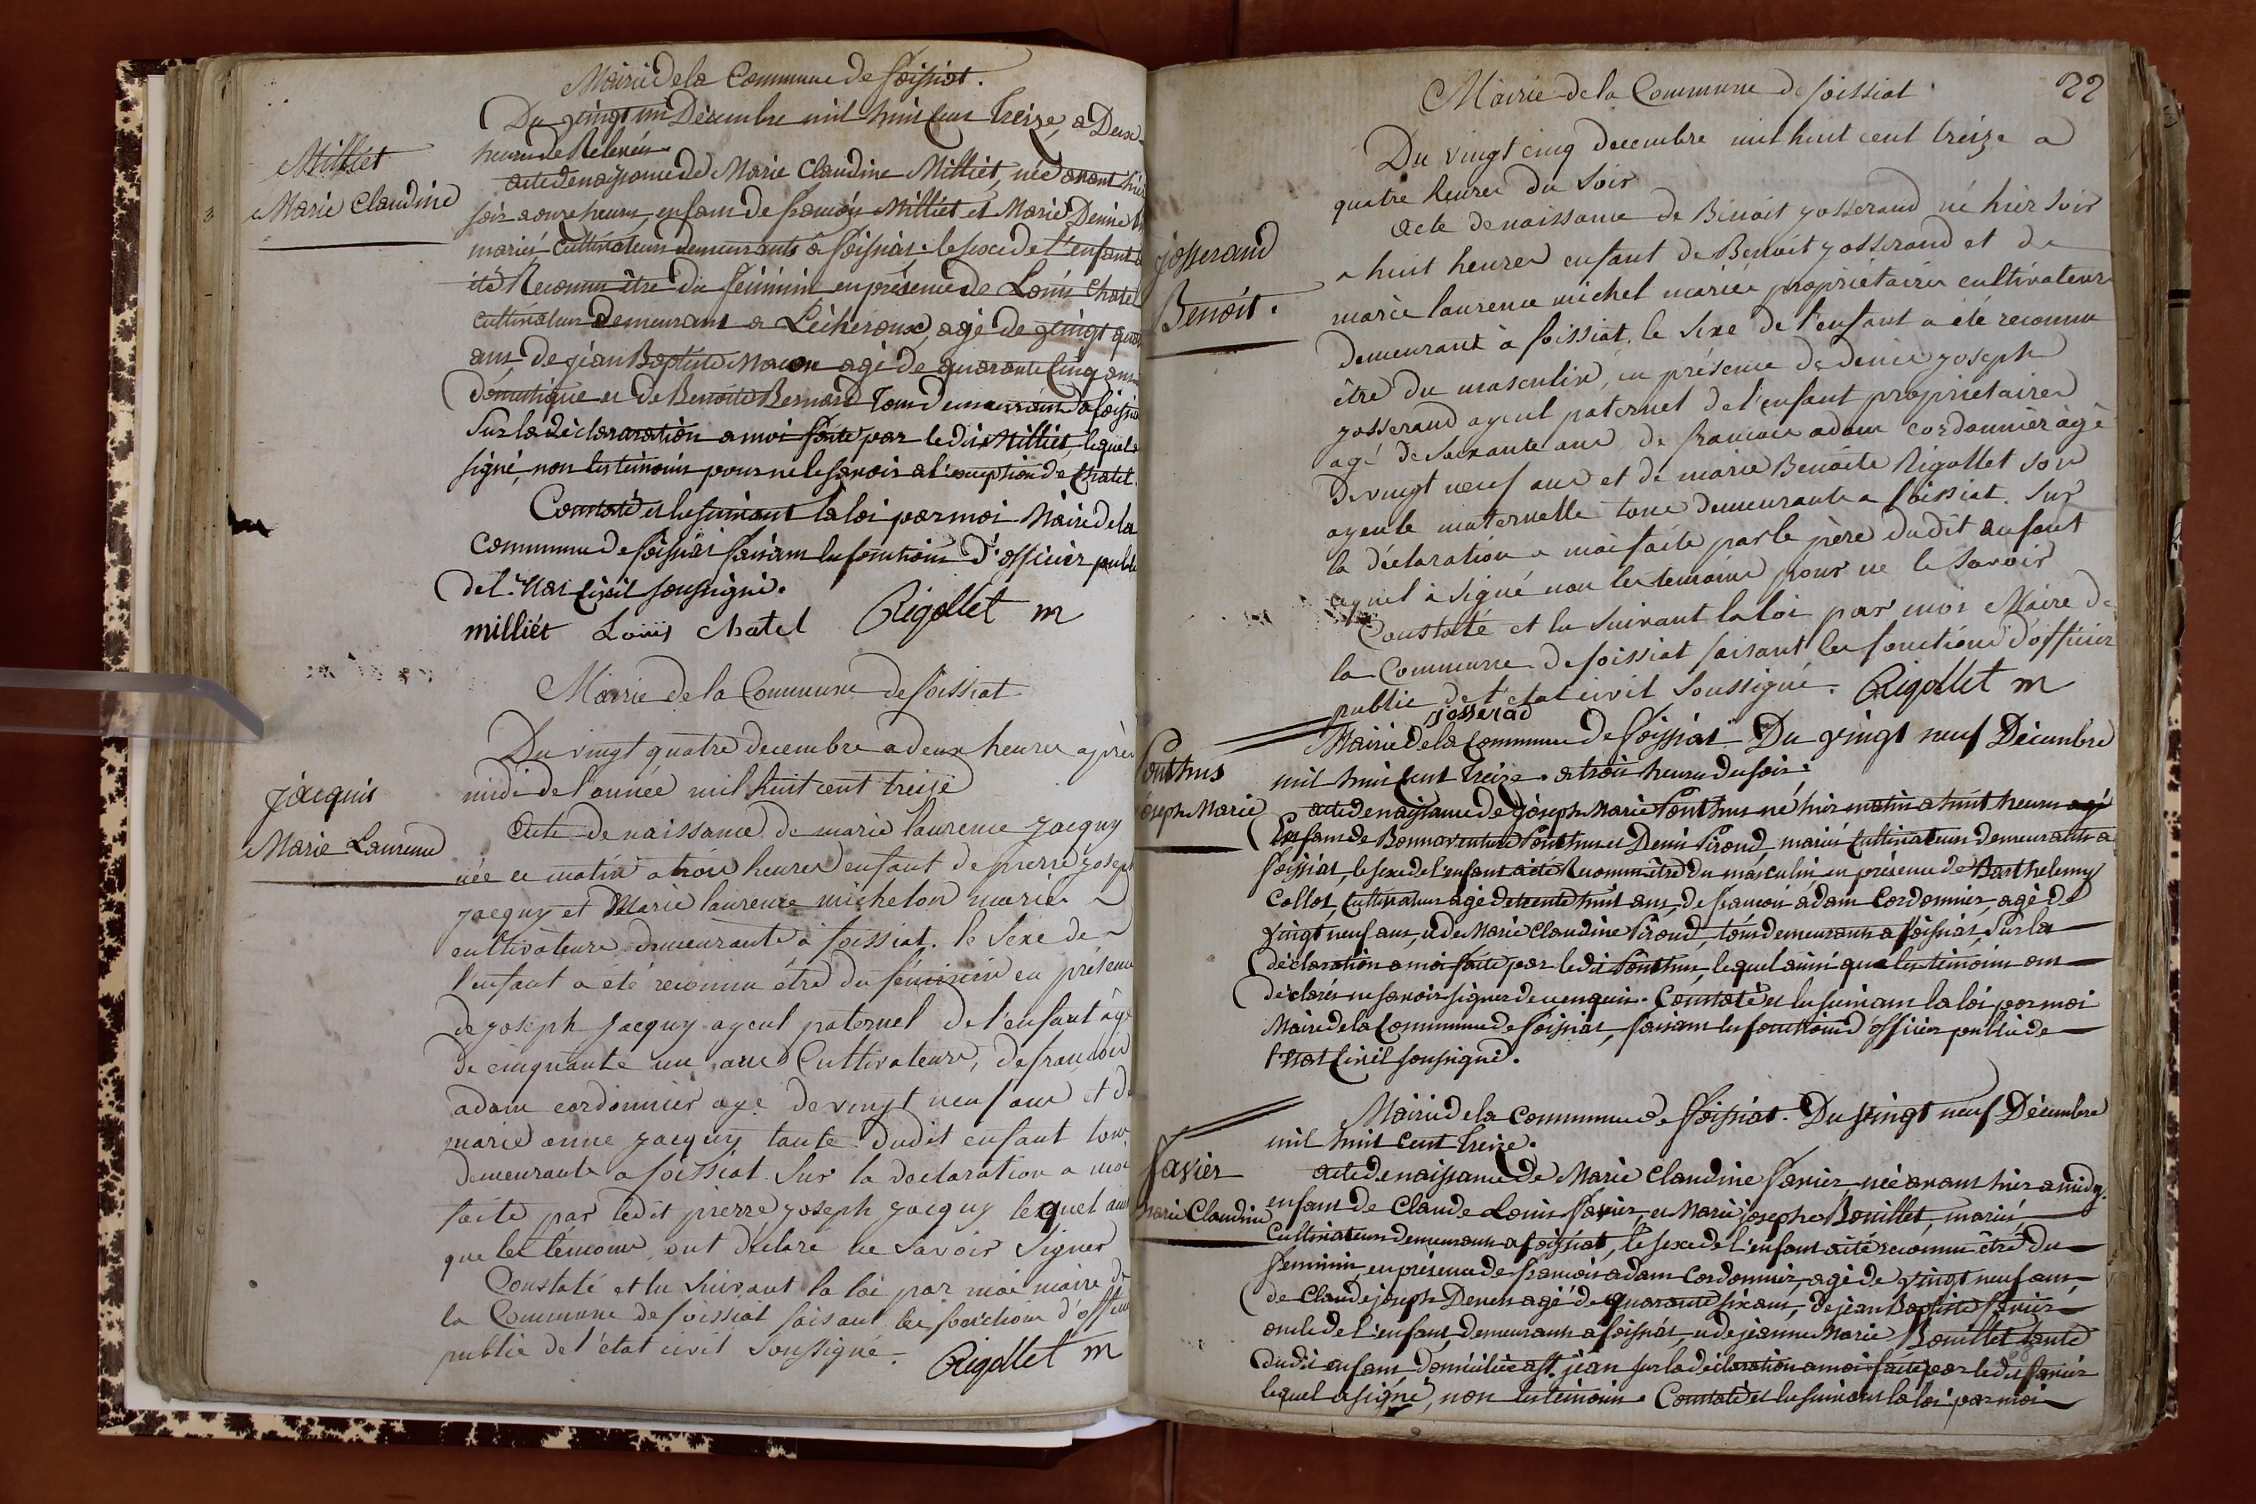 Mairie de la Commune de foissiat.
Du vingt un Décembre mil huit cent Treize, a Deux
heures de Relevée.
Milliet
Marie Claudine
acte de naissance de Marie Claudine Milliet, née avant hier
soir a onze heures, enfant de francois Milliet et Marie Denise
mariés, cultivateurs demeurants a foissiat. le sexe de l'enfant a
été Reconnu être du féminin en présence de Louis Chatel
cultivateur demeurant a Lécheroux, agé de vingt quatre
ans, de jéan Baptiste Macon agé de quarante Cinq ans
domestique et de Benoite Bernard Tous demeurans a foissiat
Sur la déclararation a moi faite par le dit Milliet, lequel a
signé, non les témoins pour ne le savoir a l'exception de Chatel.
Constaté et lu suivant la loi par moi Maire de la
Commune de foissiat faisant les fonctions d'officier public
de l'état Civil soussigné.
milliét Louïs chatel Rigollet m
Mairie de la Commune de foissiat
Du vingt quatre decembre a deux heures après
midi de l'année mil huit cent treize
jacquis
Marie Laurence
Acte de naissance de marie laurence jacquy
née ce matin a trois heures enfant de pierre joseph
jacquy et Marie laurence michelon mariés
cultivateurs demeurants à foissiat. le Sexe de
l'enfant a été reconnu être du féminin en présence
de joseph jacquy ayeul paternel de l'enfant âgé
de cinquante un ans Cultivateurs, de francois
adam cordonnier agé de vingt neuf ans et de
marie anne jacquy tante dudit enfant tous
demeurants a foissiat Sur la declaration a moi
faite par ledit pierre joseph jacquy lequel ainsi
que les temoins ont déclaré ne Savoir Signer
Constaté et lu Suivant la loi par moi maire de
la Commune de foissiat faisant les fonctions d'officier
public de l'état civil Soussigné. Rigollet m
22
Mairie de la Commune de foissiat
Du vingt cinq decembre mil huit cent treize a
quatre heures du Soir
josserand
Benoit.
Acte de naissance de Benoit josserand né hier Soir
a huit heures enfant de Benoit josserand et de
marie laurence michel mariés propriétaires cultivateurs
demeurant à foissiat. le Sexe de l'enfant a été reconnu
être du masculin, en présence de denis joseph
josserand ayeul paternel de l'enfant proprietaires
agé de Soixante ans de francois adam cordonnier âgé
De vingt neuf ans et de marie Benoite Rigollet Son
ayeule maternelle tous demeurants a foissiat. Sur
la déclaration a moi faite par le père dudit enfant
lequel à signé non les temoins pour ne le Savoir
Constaté et lu Suivant la loi par moi Maire de
la Commune de foissiat faisant les fonctions d'officier
public de l'etat civil Soussigné. Rigollet m
josserad
Mairie de la Commune de foissiat Du vingt neuf Décembre
mil huit cent Treize a trois heures du soir.
Ponthus
joseph Marie
acte de naissance de joseph Marie Ponthus né hier matin a huit heures agé
Enfant de Bonnaventure Ponthus et Denise Pirond, mariés Cultivateurs demeurants a
foissiat, le sexe de l'enfant a été Reconnu être du masculin, en présence de Barthelemy
Collot, Cultivateur agé de trente huit ans, de francois adam Cordonnier, agé de
vingt neuf ans, et de Marie Claudine Pirond, tous demeurans a foissiat, Sur la
déclaration a moi faite par le dit Ponthus, lequel ainsi que les témoins ont
déclarés ne savoir signer de ce enquis. Constaté et lu suivant la loi par moi
Maire de la Commune de foissiat, faisant les fonctions d'officier public de
l'état Civil soussigné.
Mairie de la Commune de foissiat. Du vingt neuf Décembre
mil huit Cent Treize.
favier
marie Claudine
acte de naissance de Marie Claudine favier, née avant hier a midy.
enfant de Claude Louis favier, et Marie josephe Bouillet, mariés,
Cultivateurs demeurans a foissiat, le sexe de l'enfant a été reconnu être du
féminin en présence de francois adam Cordonnier, agé de vingt neuf ans,
de Claude joseph agé de quarante six ans, de jéan Baptiste favier
oncle de l'enfant, demeurans a foissiat, et de jéanne Marie Bouillet tante
du dit enfant, domiciliée a St. jéan sur la déclaration a moi faite par le dit favier
lequel a signé, non les témoins. Constaté et lu suivant la loi par moi